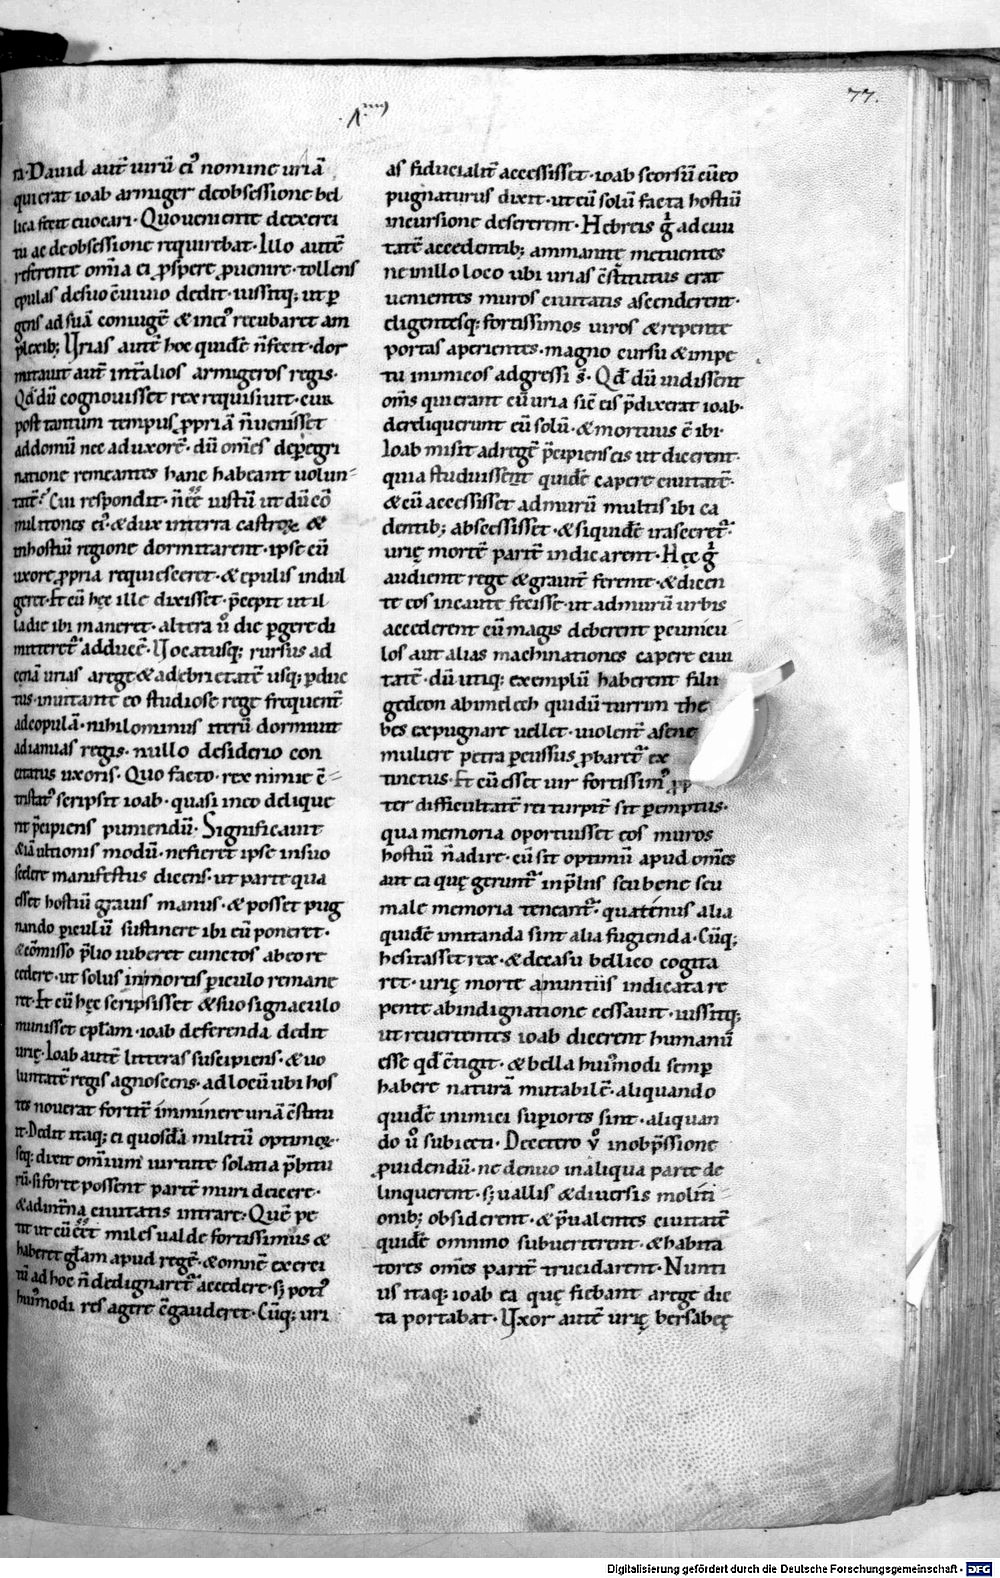 77.
ra·Dauid aut̄ uirū ei' nomine uriā
qui erat ioab armiger deobsessione bel
lica fecit euocari· Quoueniente deexerci
tu ac deobsessione requirebat· Illo autē
referente om̄ia ei ꝓspere ꝓuenire· tollens
epulas desuo c̄uiuio dedit· iussitq; ut ꝑ
gens ad suā coniugē & in ei' recubaret am
plexib; Urias autē hoc quidē n̄fecit· dor
mitauit aut̄ int̄ alios armigeros regis·
Qd̄ dū cognouisset rex requisiuit· cur
post tantum tempus ꝓpriā n̄uenisset
addomū nec ad uxorē· dū om̄es deꝑegri
natione remeantes hanc habeant uolun-
tatē· Cui respondit· n̄ eē iustū ut dū cō
militones ei'· & dux interra castroꝝ &
inhostiū regione dormitarent· ipse cū
uxore ꝓpria requiesceret· & epulis indul
geret· Et cū hęc ille dixisset· p̄cepit ut il
la die ibi maneret· altera u̇ die ꝑgere di
mitteret̄ adducē· Uocatusq; rursus ad
cenā urias arege & ad ebrietatē usq; ꝑduc
tus· inuitante eo studiose rege frequent̄
adcopulā· nihilominus iterū dormiuit
adianuas regis· nullo desiderio con
citatus uxoris· Quo facto· rex nimie c̄-
tristat' scripsit ioab· quasi ineo delique
rit p̄cipiens puniendū· Significauit
& iā ultionis modū· ne fieret ipse insuo
scelere manifestus dicens· ut parte qua
esset hostiū grauis manus· & posset pug
nando ꝑiculū sustinere ibi eū poneret·
& cōmisso p̄lio iuberet cunctos abeo re
cedere· ut solus inmortis ꝑiculo remane
ret· Et cū hęc scripsisset & suo signaculo
munisset ep̄lam· ioab deferenda dedit
urię· Ioab autē litteras suscipiens· & uo
luntatē regis agnoscens· ad locū ubi hos
tes nouerat fortit̄ imminere uriā c̄stitu
it· Dedit itaq; ei quosdā militū optimoꝝ·
seq; dixit omnium uirtute solatia p̄bitu
rū· si forte possent partē muri deicere·
& ad int̄na ciuitatis intrare· Quē pe
tiit ut cū eēt miles ualde fortissimus &
haberet gl̄am apud regē· & omnē exerci
tū ad hoc n̄ dedignaret̄ accedere· s; poti'
hui'modi res agere c̄gauderet· Cūq; uri
as fiducialit̄ accessisset· ioab seorsū cū eo
pugnaturus dixit· ut eū solū facta hostiū
incursione desererent· Hebreis g̊ ad ciui
tatē accedentib; ammanite metuentes
ne inillo loco ubi urias c̄stitutus erat
uenientes muros ciuitatis ascenderent·
eligentesq; fortissimos uiros & repente
portas aperientes· magno cursu & impe
tu inimicos adgressi s̄· Qd̄ dū uidissent
om̄s qui erant cū uria sic̄ eis p̄dixerat ioab·
dereliquerunt eū solū· & mortuus ē ibi·
Ioab misit ad regē p̄cipiens eis ut dicerent·
quia studuissent quidē capere ciuitatē·
& cū accessisset admurū multis ibi ca
dentib; abscessisset· & siquidē irasceret̄·
urię mortē parit̄ indicarent· Hęc g̊
audiente rege & grauit̄ ferente· & dicen
te eos incaute fecisse· ut admurū urbis
accederent cū magis deberent ꝑ cunicu
los aut alias machinationes capere ciui
tatē· dū utiq; exemplū haberent filii
gedeon abimelech qui dū turrim the
bes expugnare uellet· uiolent̄ asene
muliere petra ꝑcussus ꝓbaret̄ ex
tinctus· Et cū esset uir fortissim' ꝓp
ter difficultatē rei turpit̄ sit ꝑemptus·
qua memoria oportuisset eos muros
hostiū n̄adire· cū sit optimū apud om̄es
aut ea quę gerunt̄ inp̄liis seu bene seu
male memoria teneant̄· quatenus alia
quidē imitanda sint alia fugienda· Cūq;
hesitasset rex· & decasu bellico cogita
ret· urię morte anuntiis indicata re
pente abindignatione cessauit· iussitq;
ut reuertentes ioab dicerent humanū
esse qd̄ c̄tigit· & bella hui'modi semꝑ
habere naturā mutabilē· aliquando
quidē inimici suꝑiores sint· aliquan
do u̇ subiecti· Decetero u̇ inobp̄ssione
ꝓuidendū· ne denuo inaliqua parte de
linquerent· s; uallis & diuersis moliti-
onib; obsiderent· & p̄ualentes ciuitatē
quidē omnino subuerterent· & habita
tores om̄es parit̄ trucidarent· Nunti
us itaq; ioab ea quę fiebant arege dic
ta portabat· Uxor autē urię bersabeę
Digitalisierung gefördert durch die Deutsche Forschungsgemeinschaft - DFG